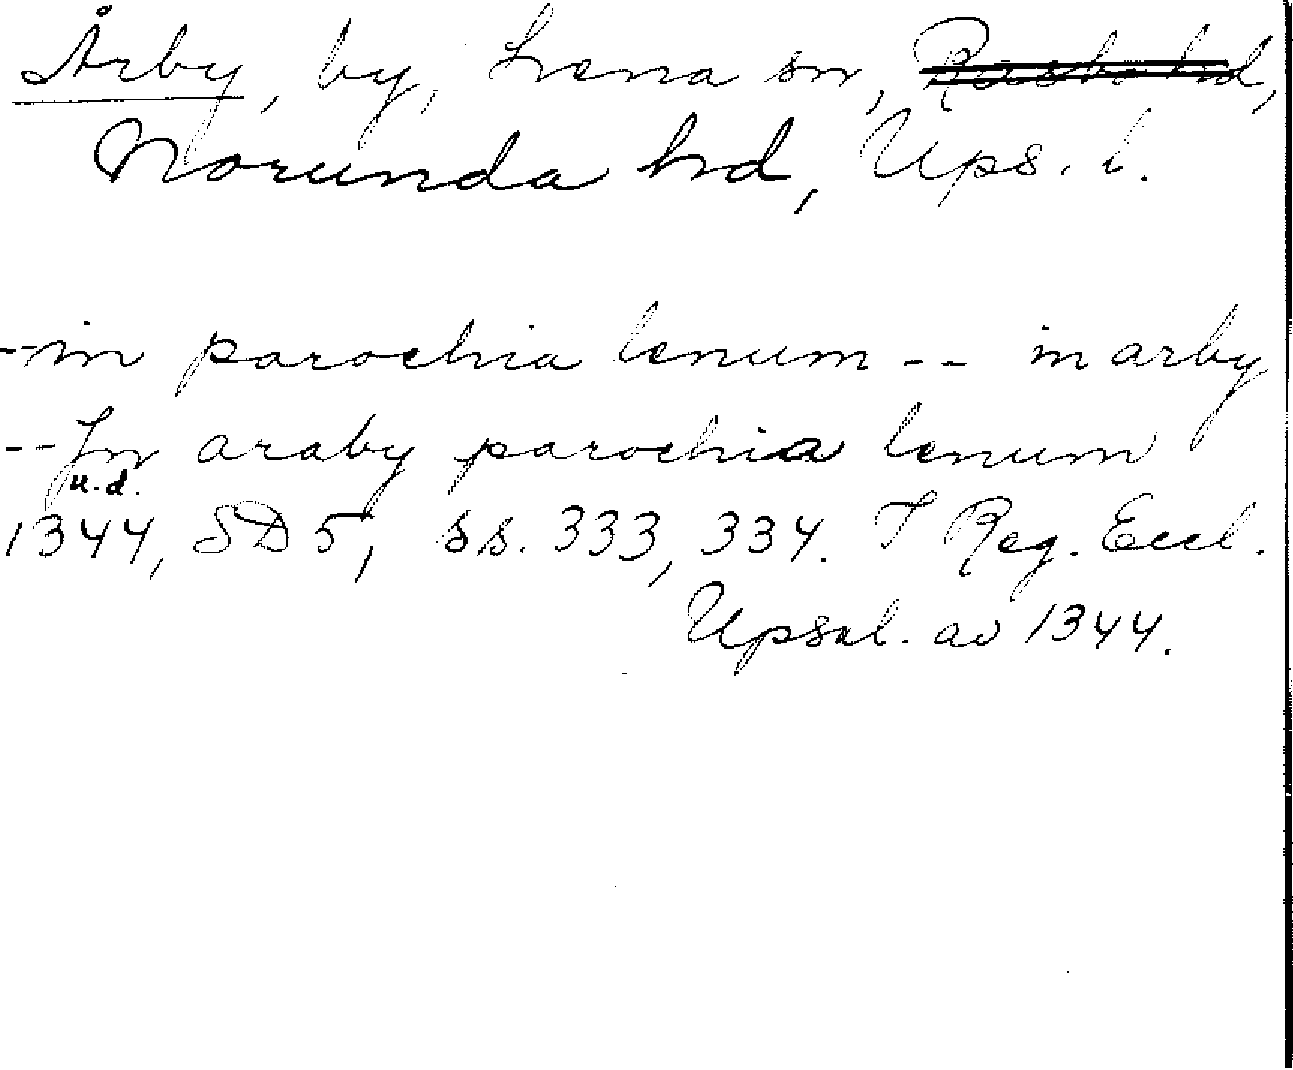 Årby, by, Lena sn, Rasbo hd,
Norunda hd, Ups. l.
--in parochia lenum -- in arby
--Jn araby parochia lenum
u.d.
1344, SD 5, ss. 333, 334. I Reg. Eccl.
Upsal. av 1344.